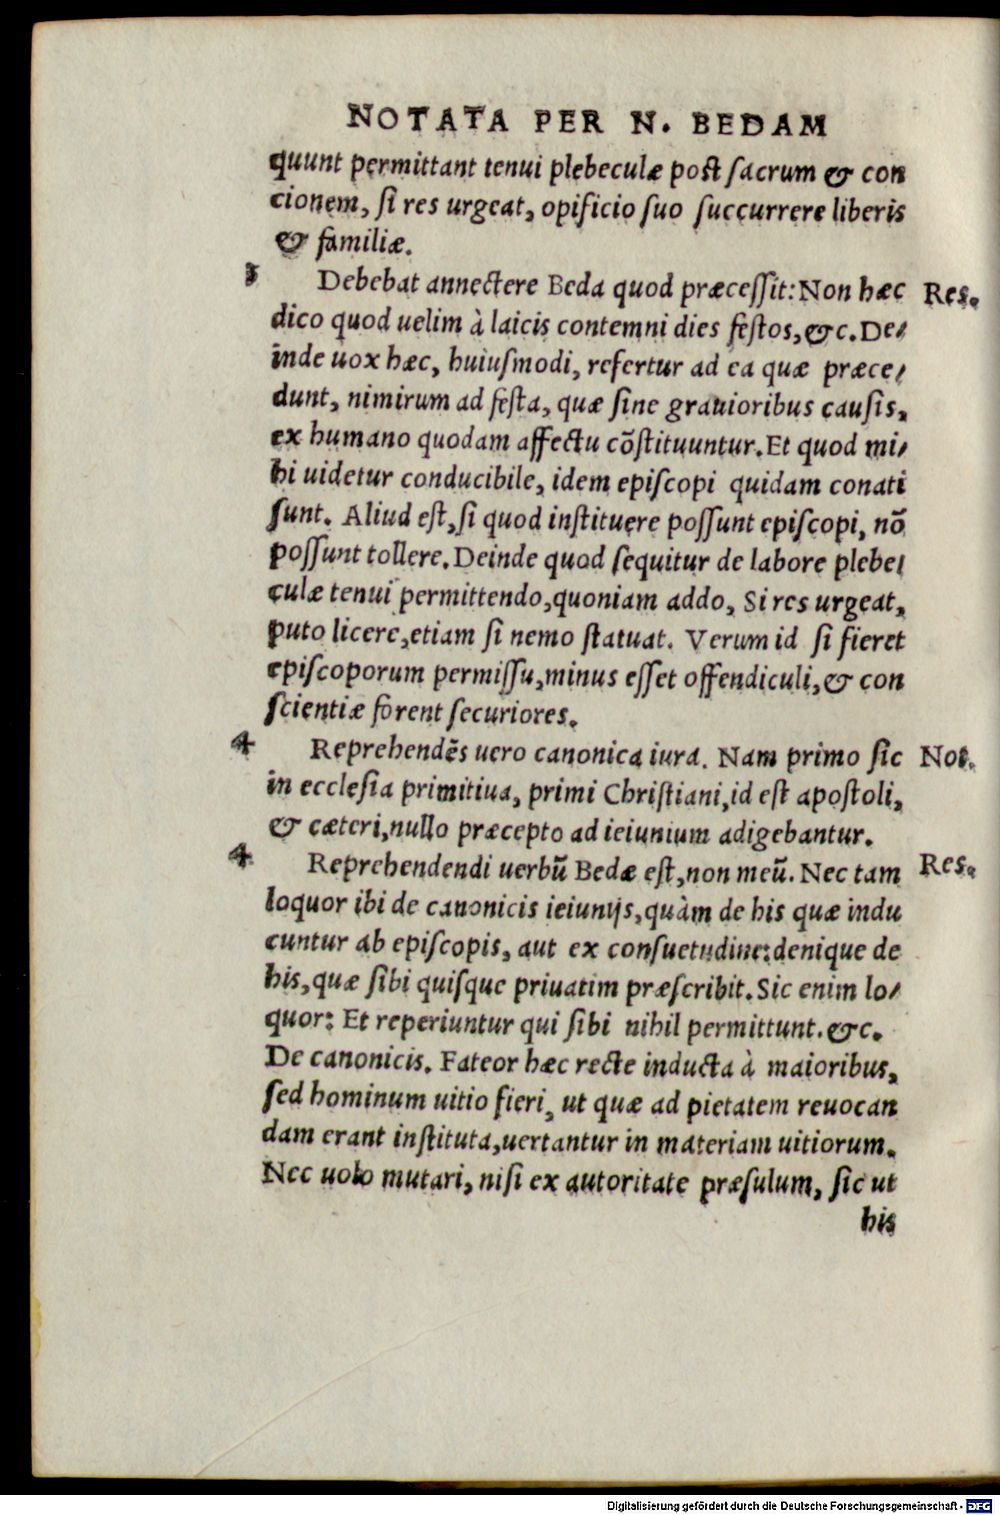 NOTATA PER N. BEDAM
quunt permittant tenui plebeculæ post sacrum & con
cionem, si res urgeat, opificio suo succurrere liberis
& familiæ.
3 Debebat annectere Beda quod præcessit: Non hæc Res.
dico quod uelim à laicis contemni dies festos, &c. De/
inde uox hæc, huiusmodi, refertur ad ea quæ præce/
dunt, nimirum ad festa, quæ sine grauioribus causis,
ex humano quodam affectu cōstituuntur. Et quod mi/
hi uidetur conducibile, idem episcopi quidam conati
sunt. Aliud est, si quod instituere possunt episcopi, nō
possunt tollere. Deinde quod sequitur de labore plebe/
culæ tenui permittendo, quoniam addo, Si res urgeat,
puto licere, etiam si nemo statuat. Verum id si fieret
episcoporum permissu, minus esset offendiculi, & con
scientiæ forent securiores.
4 Reprehendēs uero canonica iura. Nam primo sic Not.
in ecclesia primitiua, primi Christiani, id est apostoli,
& cæteri, nullo præcepto ad ieiunium adigebantur.
4 Reprehendendi uerbū Bedæ est, non meū. Nec tam Res.
loquor ibi de canonicis ieiunijs, quàm de his quæ indu
cuntur ab episcopis, aut ex consuetudine: denique de
his, quæ sibi quisque priuatim præscribit. Sic enim lo/
quor: Et reperiuntur qui sibi nihil permittunt. &c.
De canonicis. Fateor hæc recte inducta à maioribus,
sed hominum uitio fieri, ut quæ ad pietatem reuocan
dam erant instituta, uertantur in materiam uitiorum.
Nec uolo mutari, nisi ex autoritate præsulum, sic ut
his
Digitalisierung gefördert durch die Deutsche Forschungsgemeinschaft - DFG